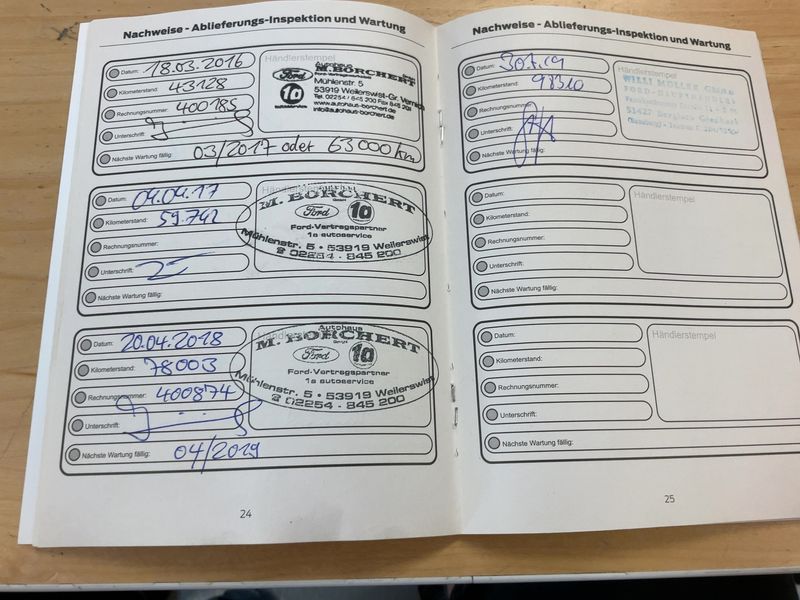 Nachweise - Ablieferungs-Inspektion und Wartung
Datum: 18.03.2016
Kilometerstand: 43128
Rechnungsnummer: 400185
Unterschrift:
Nächste Wartung fällig: 03/2017 oder 63000 km
Händlerstempel
Autohaus
M. BORCHERT
Ford-Vertragspartner
Ford
Mühlenstr. 5
1a
53919 Weilerswist-Gr. Vernich
autoservice
Tel. 02254 / 845 200 Fax 845 201
www.autohaus-borchert.de
info@autohaus-borchert.de
Datum: 04.04.17
Kilometerstand: 59.742
Rechnungsnummer:
Unterschrift:
Nächste Wartung fällig:
Händlerstempel
M. BORCHERT
GmbH
Ford 1a
Ford-Vertragspartner
1a autoservice
Mühlenstr. 5 • 53919 Weilerswist
02254 - 845 200
Datum: 20.04.2018
Kilometerstand: 78003
Rechnungsnummer: 400874
Unterschrift:
Nächste Wartung fällig: 04/2019
Händlerstempel
Autohaus
M. BORCHERT
GmbH
Ford 1a
Ford-Vertragspartner
1a autoservice
Mühlenstr. 5 • 53919 Weilerswist
02254 - 845 200
24
Nachweise - Ablieferungs-Inspektion und Wartung
Datum:
Kilometerstand: 98310
Rechnungsnummer:
Unterschrift:
Nächste Wartung fällig:
Händlerstempel
WILLI MÖLLER GmbH
51427 Bergisch Gladbach
Datum:
Kilometerstand:
Rechnungsnummer:
Unterschrift:
Nächste Wartung fällig:
Händlerstempel
Datum:
Kilometerstand:
Rechnungsnummer:
Unterschrift:
Nächste Wartung fällig:
Händlerstempel
25